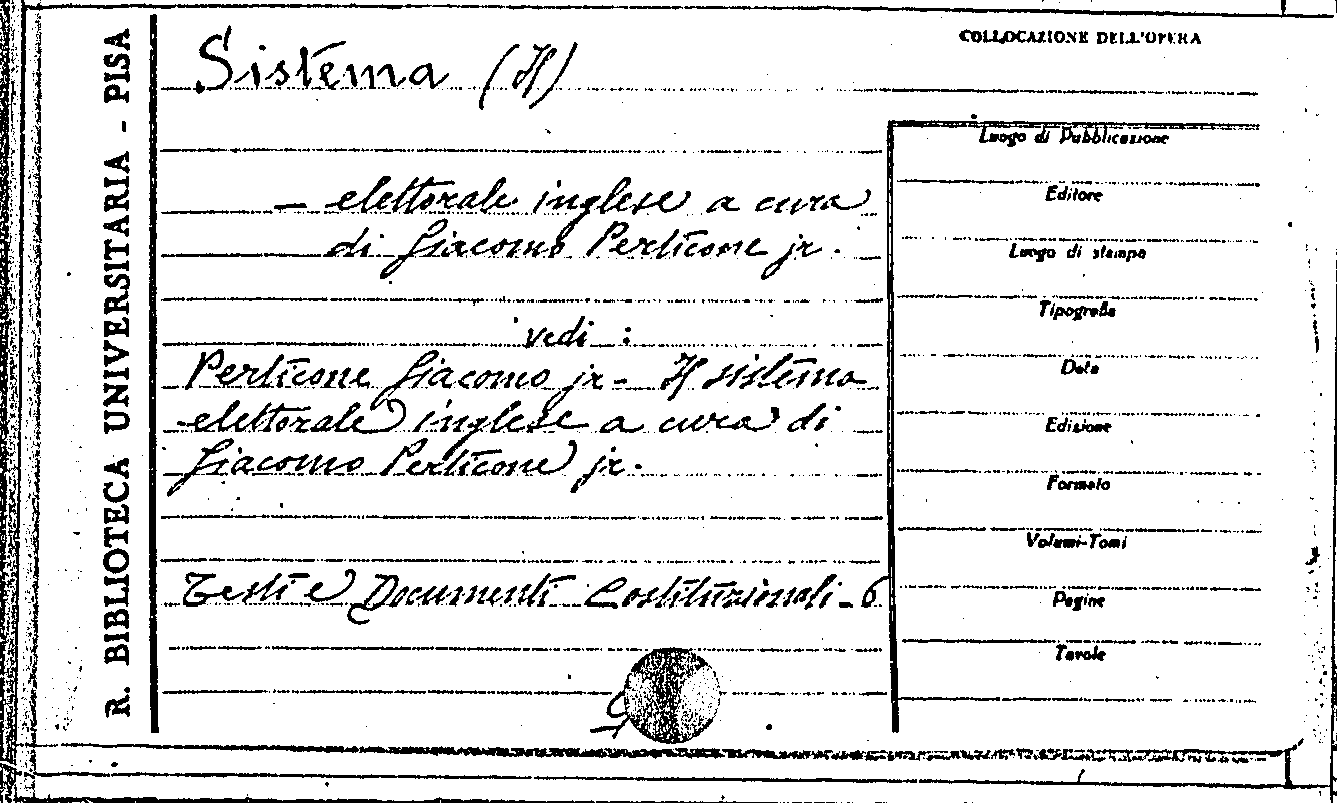 R. BIBLIOTECA UNIVERSITARIA - PISA
Sistema (Il)
COLLOCAZIONE DELL'OPERA
— elettorale inglese a cura
di Giacomo Perticone jr.
vedi :
Perticone Giacomo jr - Il sistema
elettorale inglese a cura di
Giacomo Perticone jr.
Testi e Documenti Costituzionali - 6
Luogo di Pubblicazione
Editore
Luogo di stampa
Tipografia
Data
Edizione
Formato
Volumi-Tomi
Pagine
Tavole